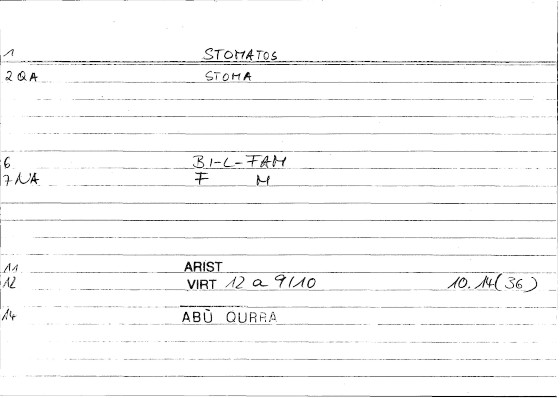 1 STOMATOS
2 QA STOMA
6 BI-L-FAM
7 NA F M
11 ARIST
12 VIRT 12 a 9/10 10.14(36)
14 ABÙ QURRA